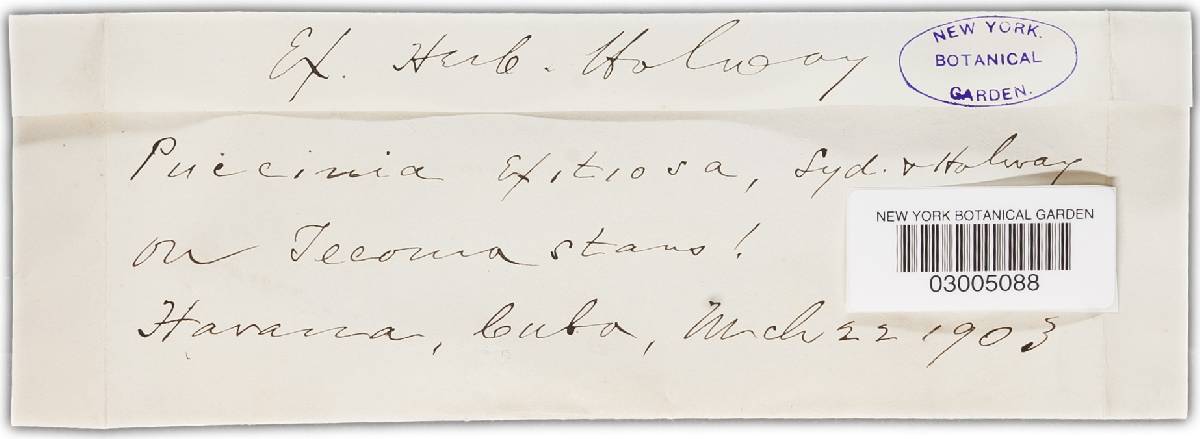 Ex. Herb. Holway
NEW YORK.
BOTANICAL
GARDEN.
Puccinia Exitiosa, Syd. & Holway
on Tecoma stans!
Havana, Cuba, Mch 22 1903
NEW YORK BOTANICAL GARDEN
03005088